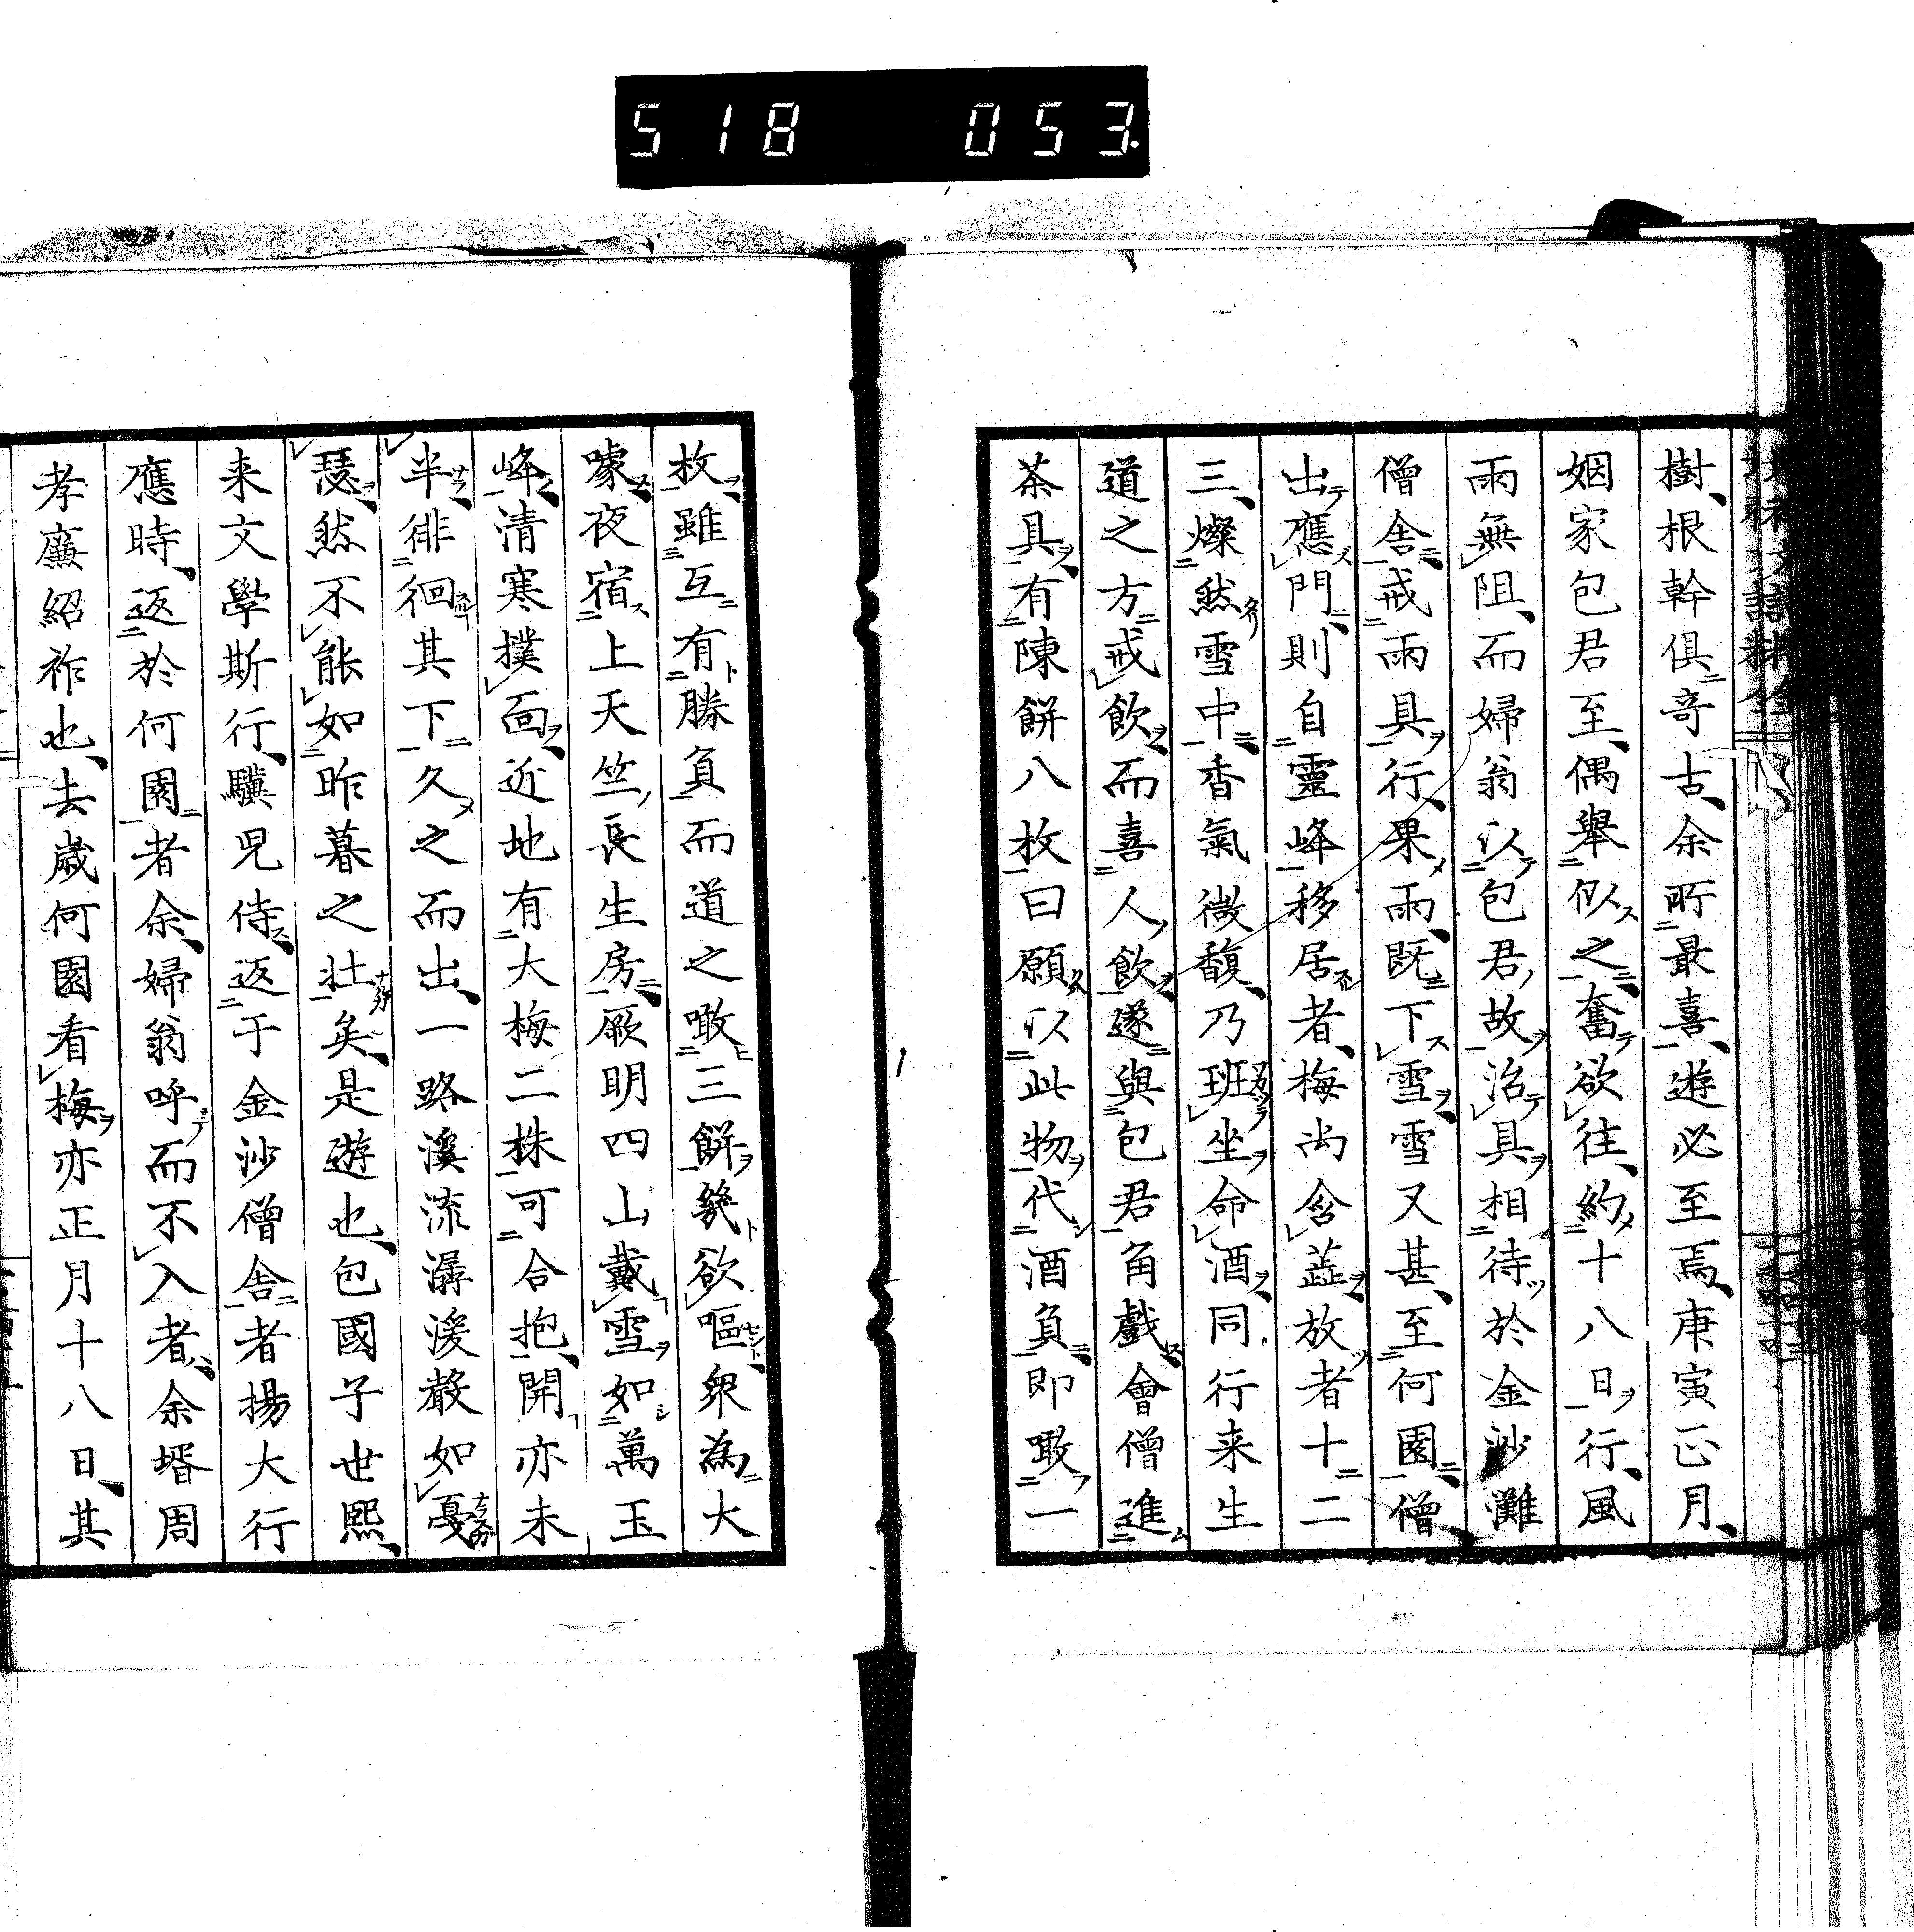 518 053
樹根幹俱竒古余所最喜遊必至焉庚寅正月
姻家包君至偶舉似之奮欲往約十八日行風
雨無阻而婦翁以包君故治具相待於金沙灘
僧舎戒雨具行果雨既下雪雪又甚至何園僧
出應門則自靈峰移居者梅尚含蕋放者十二
三燦然雪中香氣微馥乃班坐命酒同行来生
道之方戒飲而喜人飲遂與包君角戲會僧進
茶具有陳餅八枚曰願以此物代酒負即噉一
枚雖互有勝負而道之噉三餅幾欲嘔衆為大
噱夜宿上天竺長生房厥明四山戴雪如萬玉
峰清寒撲面近地有大梅二株可合抱開亦未
半徘徊其下久之而出一路溪流潺湲聲如戞
瑟然不能如昨暮之壮矣是遊也包國子世熙
来文學斯行驥児侍返于金沙僧舎者揚大行
應時返於何園者余婦翁呼而不入者余壻周
孝廉紹祚也去歲何園看梅亦正月十八日其